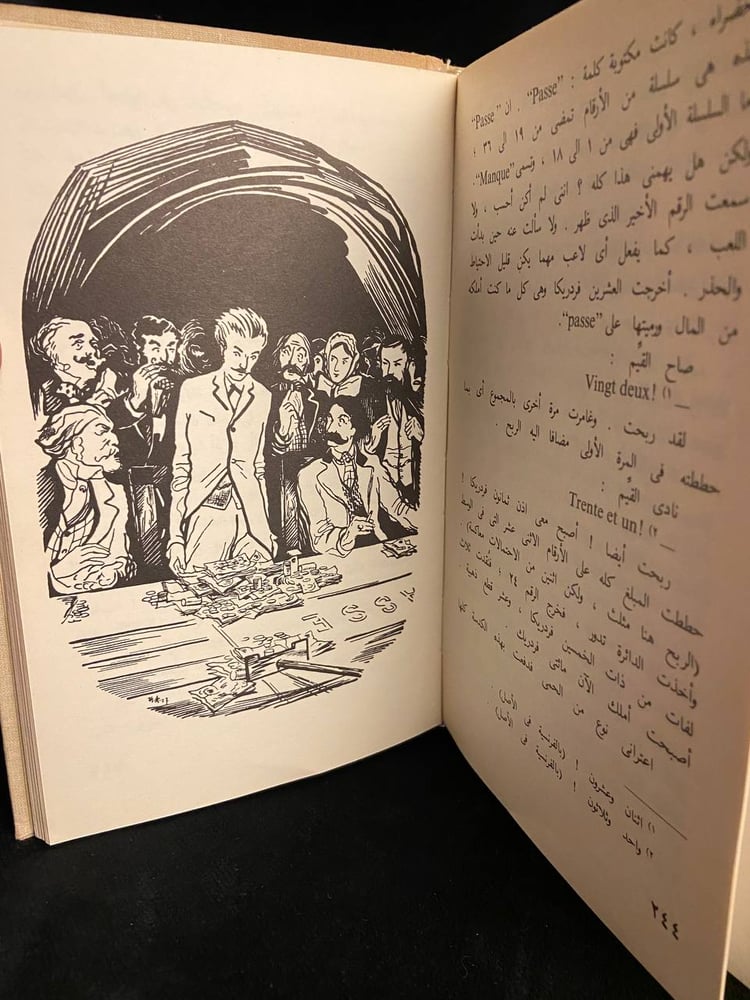 خضراء ، كانت مكتوبة كلمة : "Passe" . ان "Passe"
هى سلسلة من الأرقام تمضى من ١٩ الى ٣٦ ؛
السلسلة الأولى فهى من ١ الى ١٨ ، وتسمى "Manque".
ولكن هل يهمنى هذا كله ؟ اننى لم أكن أحسب ، ولا
سمعت الرقم الأخير الذى ظهر . ولا سألت عنه حين بدأت
اللعب ، كما يفعل أى لاعب مهما يكن قليل الاحتياط
والحذر . أخرجت العشرين فردريكا وهى كل ما كنت أملكه
من المال ورميتها على "passe".
صاح القيّم :
— Vingt deux! (١
لقد ربحت . وغامرت مرة أخرى بالمجموع أى بما
حططته فى المرة الأولى مضافا اليه الربح .
نادى القيّم :
— Trente et un! (٢
ربحت أيضا ! أصبح معى اذن ثمانون فردريكا !
حططت المبلغ كله على الأرقام الاثنى عشر التى فى الوسط
(الربح هنا مثلث ، ولكن اثنين من الاحتمالات معاكسة) .
وأخذت الدائرة تدور ، فخرج الرقم ٢٤ ؛ فنقدت ثلاث
لفات من ذات الخمسين فردريكا ، وعشر قطع ذهبية .
أصبحت أملك الآن مائتى فردريك .
اعترانى نوع من الحمى فدفعت بهذه الكدسة كلها
١) اثنان وعشرون ! (بالفرنسية فى الأصل) .
٢) واحد وثلاثون ! (بالفرنسية فى الأصل) .
٢٤٤